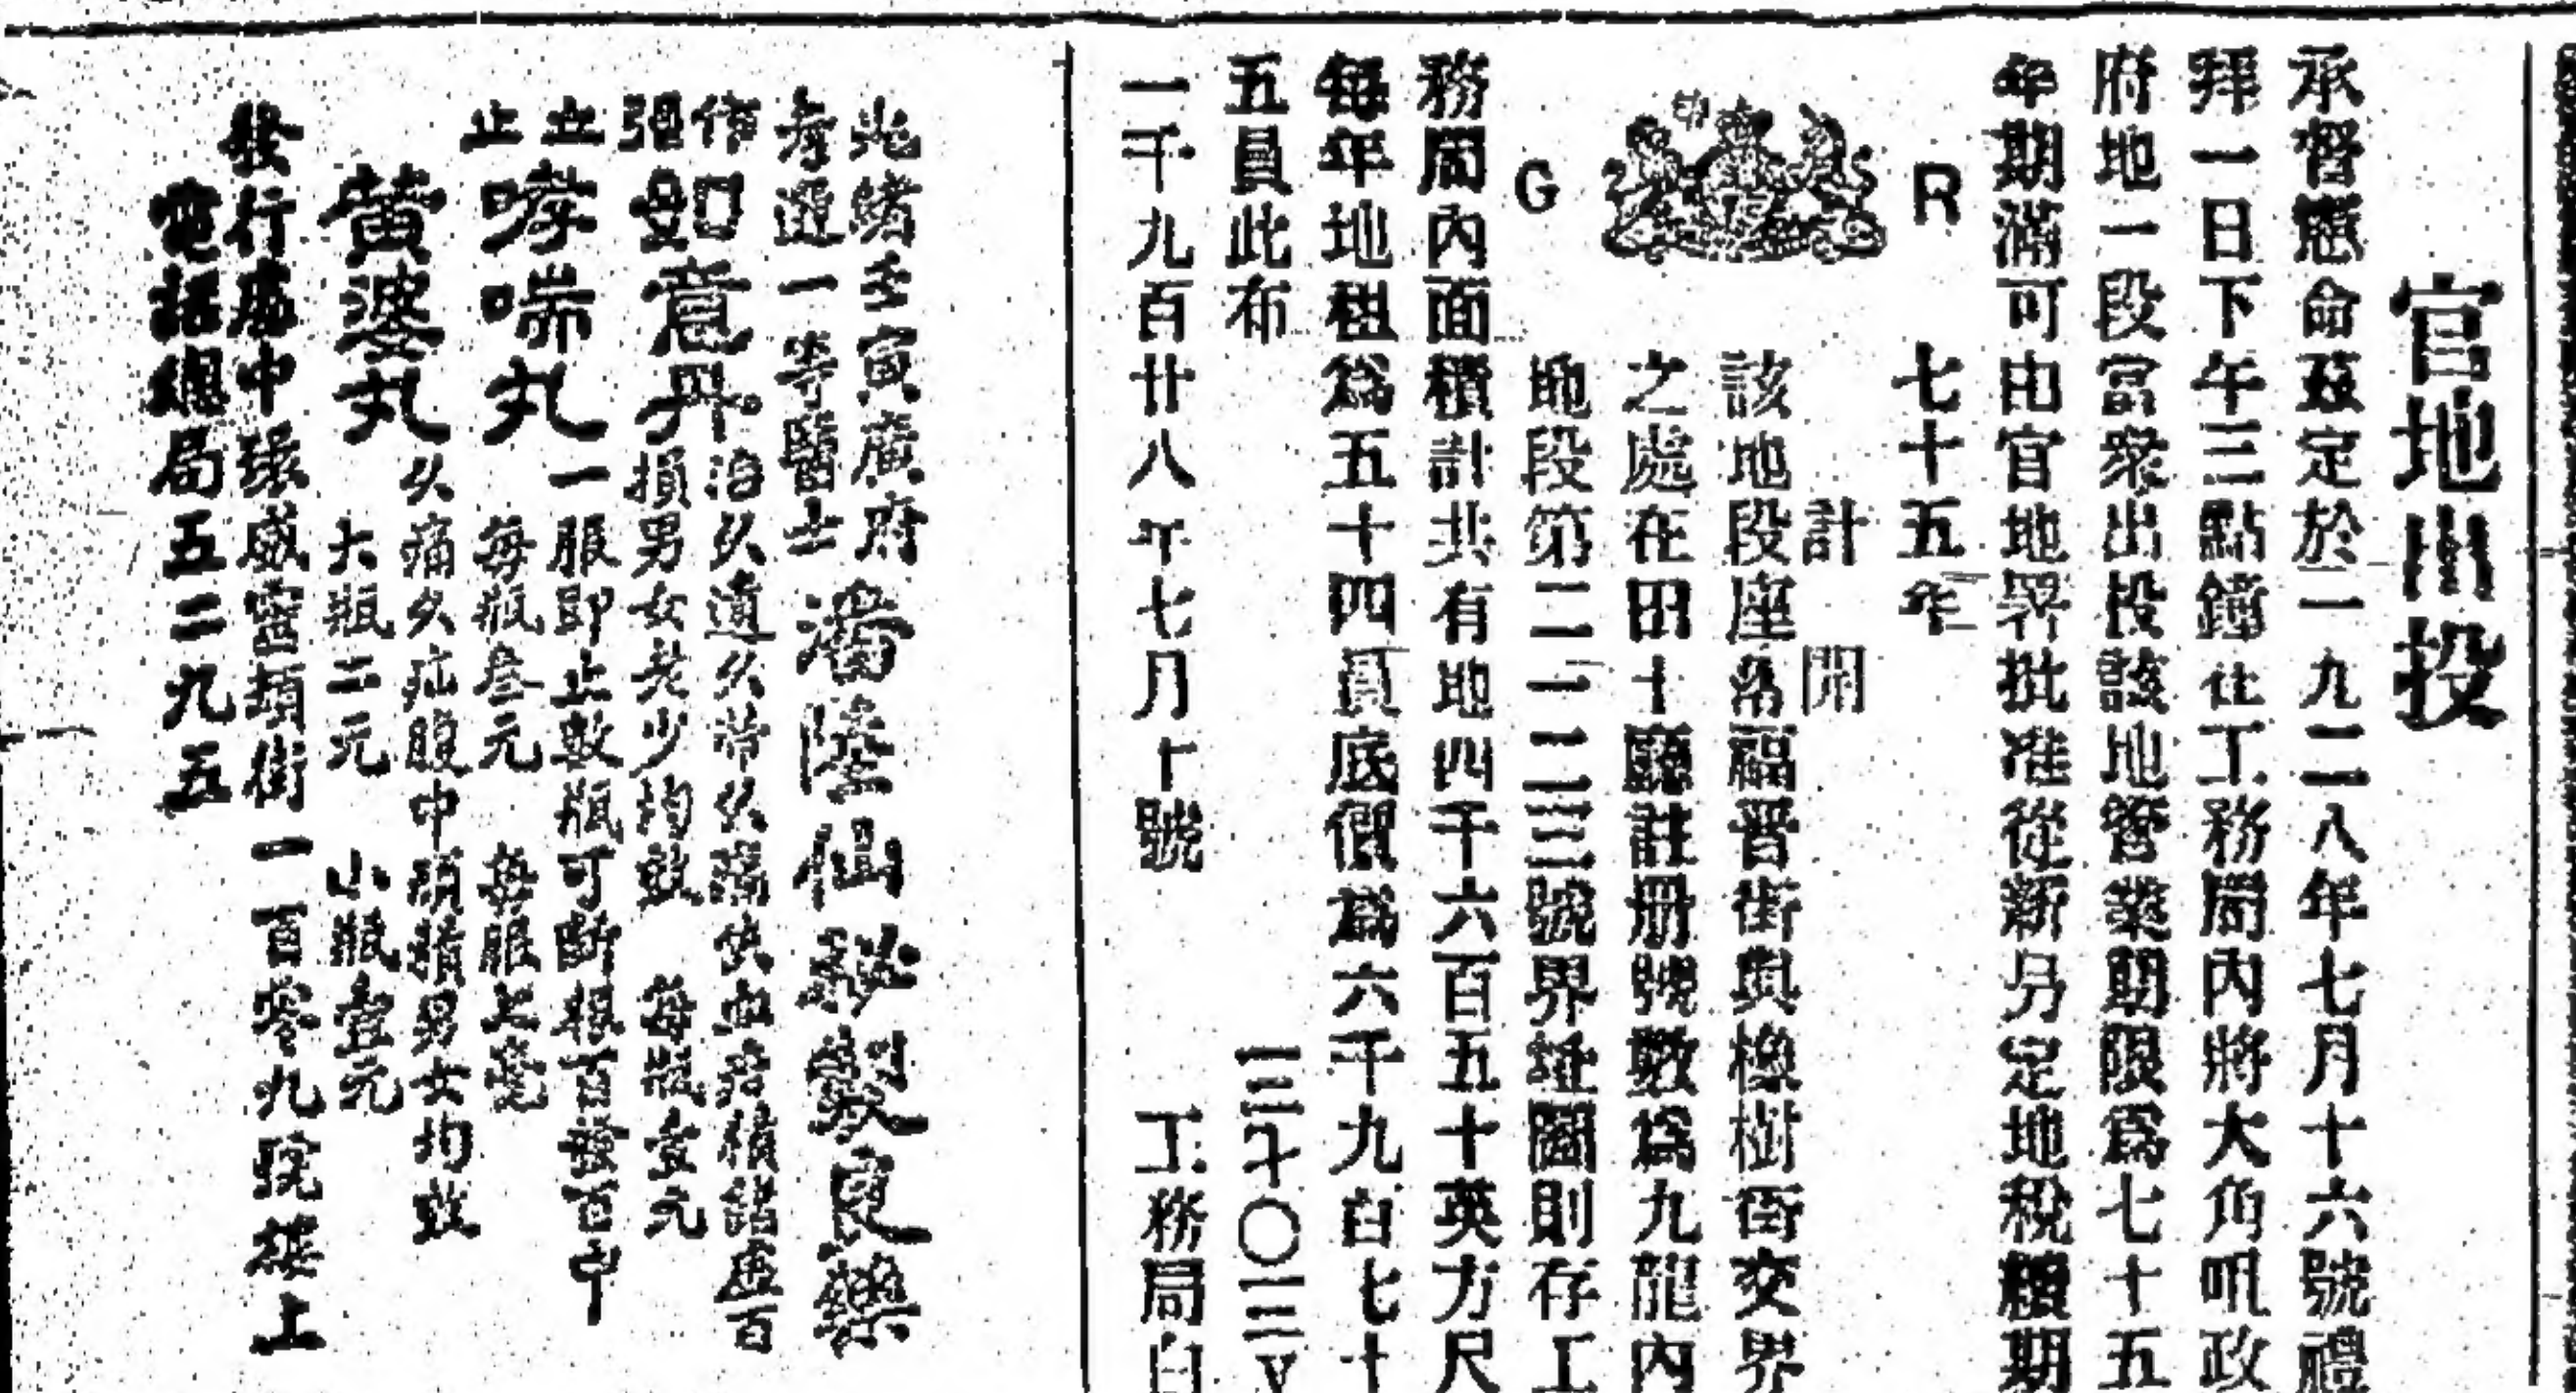 官地出投
承督憲命茲定於一九二八年七月十六號禮
拜一日下午三點鐘在工務局內將大角咀政
府地一段當眾出投該地管業期限為七十五
年期滿可由官地署批准從新另定地稅續期
七十五年
R
G
計開
該地段座落福晋街與橡樹街交界
之處在田土廳註冊號數為九龍內
地段第二一二三號界址圖則存工
務局內面積計共有地四千六百五十英方尺
每年地租為五十四員底價為六千九百七十
五員此布
一千九百廿八年七月十號
工務局白
光緒壬寅廣府
考選一等醫士
潘陸仙秘製良藥
如意丹
治久遺久帶久
損男女老少均效 每瓶壹元
立止哮喘丸
一服即止數瓶可斷根百發百中
每瓶叁元 每服上毫
黃婆丸
久痛久疴腹中積男女均效
大瓶二元 小瓶壹元
發行處中環威靈頓街一百零九號樓上
電話總局五二九五